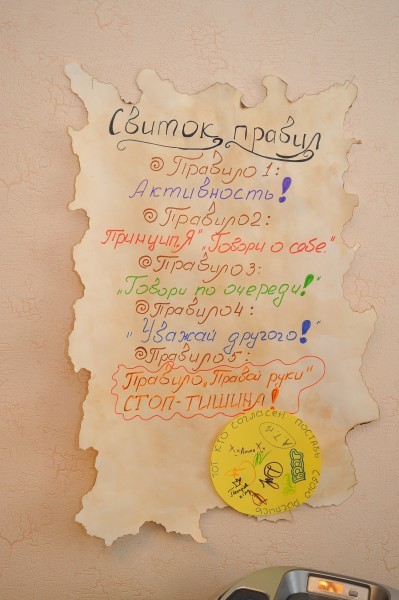 Свиток правил
Правило 1:
Активность!
Правило 2:
Принцип „Я" „Говори о себе."
Правило 3:
„Говори по очереди!"
Правило 4:
„Уважай другого!"
Правило 5:
Правило „Правой руки"
СТОП-ТИШИНА!
ТОТ КТО СОГЛАСЕН ПОСТАВЬ СВОЮ РОСПИСЬ